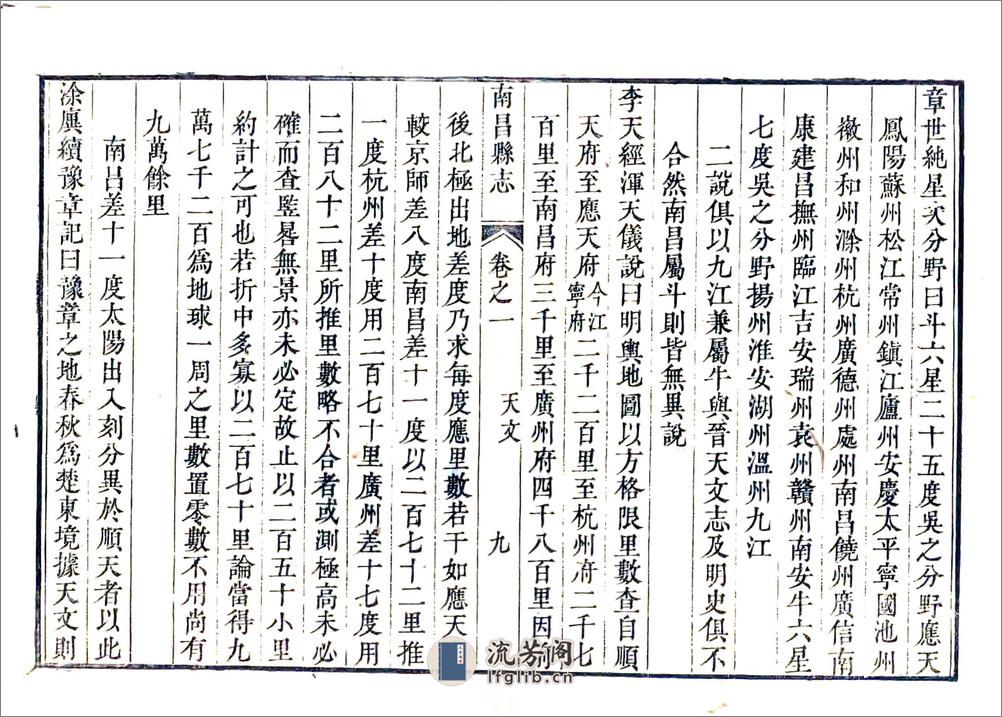 章世純星次分野曰斗六星二十五度吳之分野應天
鳳陽蘇州松江常州鎮江廬州安慶太平寧國池州
徽州和州滁州杭州廣德州處州南昌饒州廣信南
康建昌撫州臨江吉安瑞州袁州贛州南安牛六星
七度吳之分野揚州淮安湖州溫州九江
二說俱以九江兼屬牛與晉天文志及明史俱不
合然南昌屬斗則皆無異說
李天經渾天儀說曰明輿地圖以方格限里數查自順
天府至應天府今江寧府二千二百里至杭州府二千七
百里至南昌府三千里至廣州府四千八百里因
南昌縣志 卷之一 天文 九
後北極出地差度乃求每度應里數若干如應天
較京師差八度南昌差十一度以二百七十二里推
一度杭州差十度用二百七十里廣州差十七度用
二百八十二里所推里數略不合者或測極高未必
確而查監晷無景亦未必定故止以二百五十小里
約計之可也若折中多寡以二百七十里論當得九
萬七千二百為地球一周之里數置零數不用尚有
九萬餘里
南昌差十一度太陽出入刻分異於順天者以此
涂廙續豫章記曰豫章之地春秋為楚東境據天文則
流芳閣
lfglib.cn